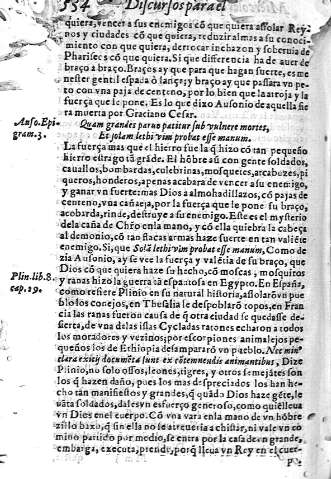 554 Discursos para el
quiera, vencer a sus enemigos cō que quiera assolar Rey-
nos y ciudades cō que quiera, reduzir almas a su conoci-
miento con que quiera, derrocar inchazon y soberuia de
Phariseos cō que quiera. Si que differencia ha de auer de
braço a braço. Braços ay que para que hagan fuerte, es me
nester gentil espada o lança; y braço ay que passara vn pe-
cho con vna paja de centeno, por lo bien que la arroja y la
fuerça que le pone. Es lo que dixo Ausonio de aquella fie
ra muerta por Graciano Cesar.
Auso. Epi
gram. 3.
Quam grandes paruo patitur sub vulnere mortes,
Et solam lethi vim probat esse manum.
La fuerça mas que el hierro fue la q̄ hizo cō tan pequeño
hierro estrago tā grāde. El hōbre aū con gente soldados,
cauallos, bombardas, culebrinas, mosquetes, arcabuzes, pi
queros, honderos, apenas acabara de vencer a su enemigo,
y ganar vn fuerte: mas Dios a almohadillasos, cō pajas de
centeno, vna cañaveja, por la fuerça que le pone su braço,
acobarda, rinde, destruye a su enemigo. Este es el mysterio
de la caña de Chro en la mano, y cō ella quiebra la cabeça
al demonio, cō tan flacas armas haze suerte en tan valiēte
enemigo. Si, que Solā lethi vim probat esse manum, Como de
zia Ausonio, ay se vee la fuerça y valētia de su braço, que
Dios cō que quiera haze su hecho, cō moscas, mosquitos
y ranas hizo la guerra tā espantosa en Egypto. En España,
Plin. lib. 8.
cap. 29.
como refiere Plinio en su natural historia, assolarō vn pue
blo los conejos, en Thessalia le despoblarō topos, en Fran
cia las ranas fueron causa de q̄ otra ciudad se quedasse de-
sierta, de vna de las islas Cycladas ratones echaron a todos
los moradores y vezinos, por escorpiones animalejos pe-
queños los de Ethiopia desampararō vn pueblo. Nec min
clara exitij documēta sunt ex cōtemnēdis animantibus, Dize
Plinio, no solo ossos, leones, tigres, y otros semejātes son
los q̄ hazen daño, pues los mas despreciados los han he-
cho tan manifiestos y grandes, q̄ quādo Dios haze gēte, le
uāta soldados, dales vn esfuerço generoso, como quiē lleua
vn Dios en el cuerpo. Cō vna vara en la mano de vn hōbre
zillo baxo, q̄ sin ella no se atreueria a chistar, ni vale vn co
mino partido por medio, se entra por la casa de vn grande,
embarga, executa, prende, porq̄ lleua vn Rey en el cuer-